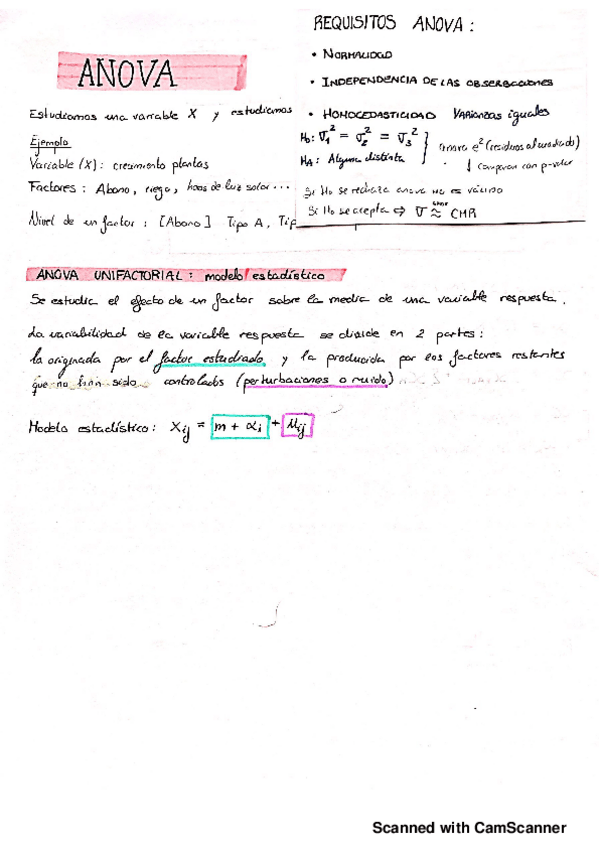 ANOVA
Estudiamos una variable X y estudiamos
Ejemplo
Variable (X): crecimiento plantas
Factores: Abono, riego, horas de luz solar...
Nivel de un factor: [Abono] Tipo A, Tip
REQUISITOS ANOVA:
• NORMALIDAD
• INDEPENDENCIA DE LAS OBSERVACIONES
• HOMOCEDASTICIDAD Varianzas iguales
H₀: σ₁² = σ₂² = σ₃²
Hₐ: Alguna distinta
anova e² (residuos al cuadrado)
↓ comparan con p-valor
Si H₀ se rechaza anova no es válido
Si H₀ se acepta ⇔ σ ≈ CMR
ANOVA UNIFACTORIAL: modelo estadístico
Se estudia el efecto de un factor sobre la media de una variable respuesta.
La variabilidad de la variable respuesta se divide en 2 partes:
la originada por el factor estudiado y la producida por los factores restantes
que no han sido controlados (perturbaciones o ruido)
Modelo estadístico: Xij = m + αi + μij
Scanned with CamScanner